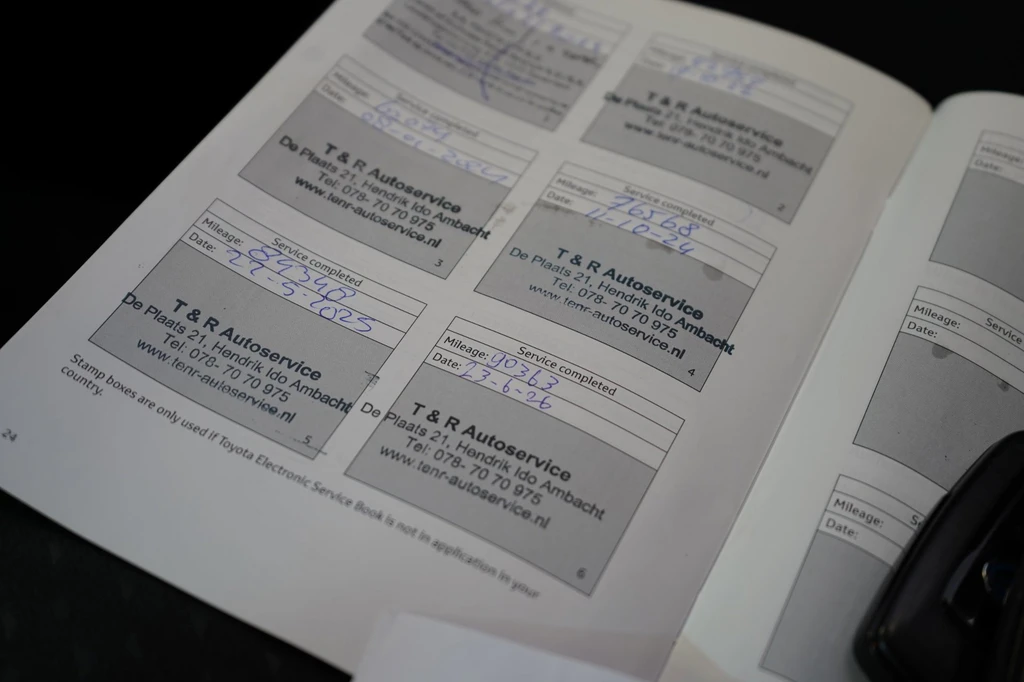 1
Service completed
T & R Autoservice
De Plaats 21, Hendrik Ido Ambacht
Tel: 078- 70 70 975
www.tenr-autoservice.nl
2
Service completed
Mileage:
Date:
T & R Autoservice
De Plaats 21, Hendrik Ido Ambacht
Tel: 078- 70 70 975
www.tenr-autoservice.nl
3
Service completed
Mileage: 76568
Date: 11-10-24
T & R Autoservice
De Plaats 21, Hendrik Ido Ambacht
Tel: 078- 70 70 975
www.tenr-autoservice.nl
4
Service completed
Mileage: 84348
Date: 27-5-2025
T & R Autoservice
De Plaats 21, Hendrik Ido Ambacht
Tel: 078- 70 70 975
www.tenr-autoservice.nl
5
Service completed
Mileage: 90363
Date: 23-6-26
T & R Autoservice
De Plaats 21, Hendrik Ido Ambacht
Tel: 078- 70 70 975
www.tenr-autoservice.nl
6
Stamp boxes are only used if Toyota Electronic Service Book is not in application in your
country.
24
Mileage:
Date:
Service
Mileage:
Date:
Mileage:
Date: